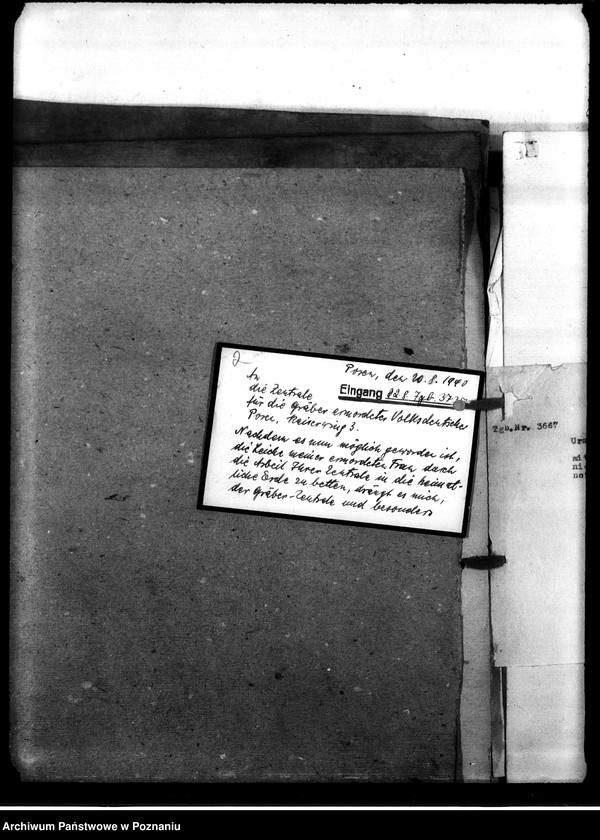 Posen, den 20.8.1940
An
die Zentrale
Eingang 22.8. Tgb. 37
für die Gräber ermordeter Volksdeutscher
Posen, Kaiserring 3.
Nachdem es nun möglich geworden ist,
die Leiche meiner ermordeten Frau durch
die Arbeit Ihrer Zentrale in die heimat-
liche Erde zu betten, drängt es mich,
der Gräber-Zentrale und besonders
Tgb.Nr. 3667
Archiwum Państwowe w Poznaniu